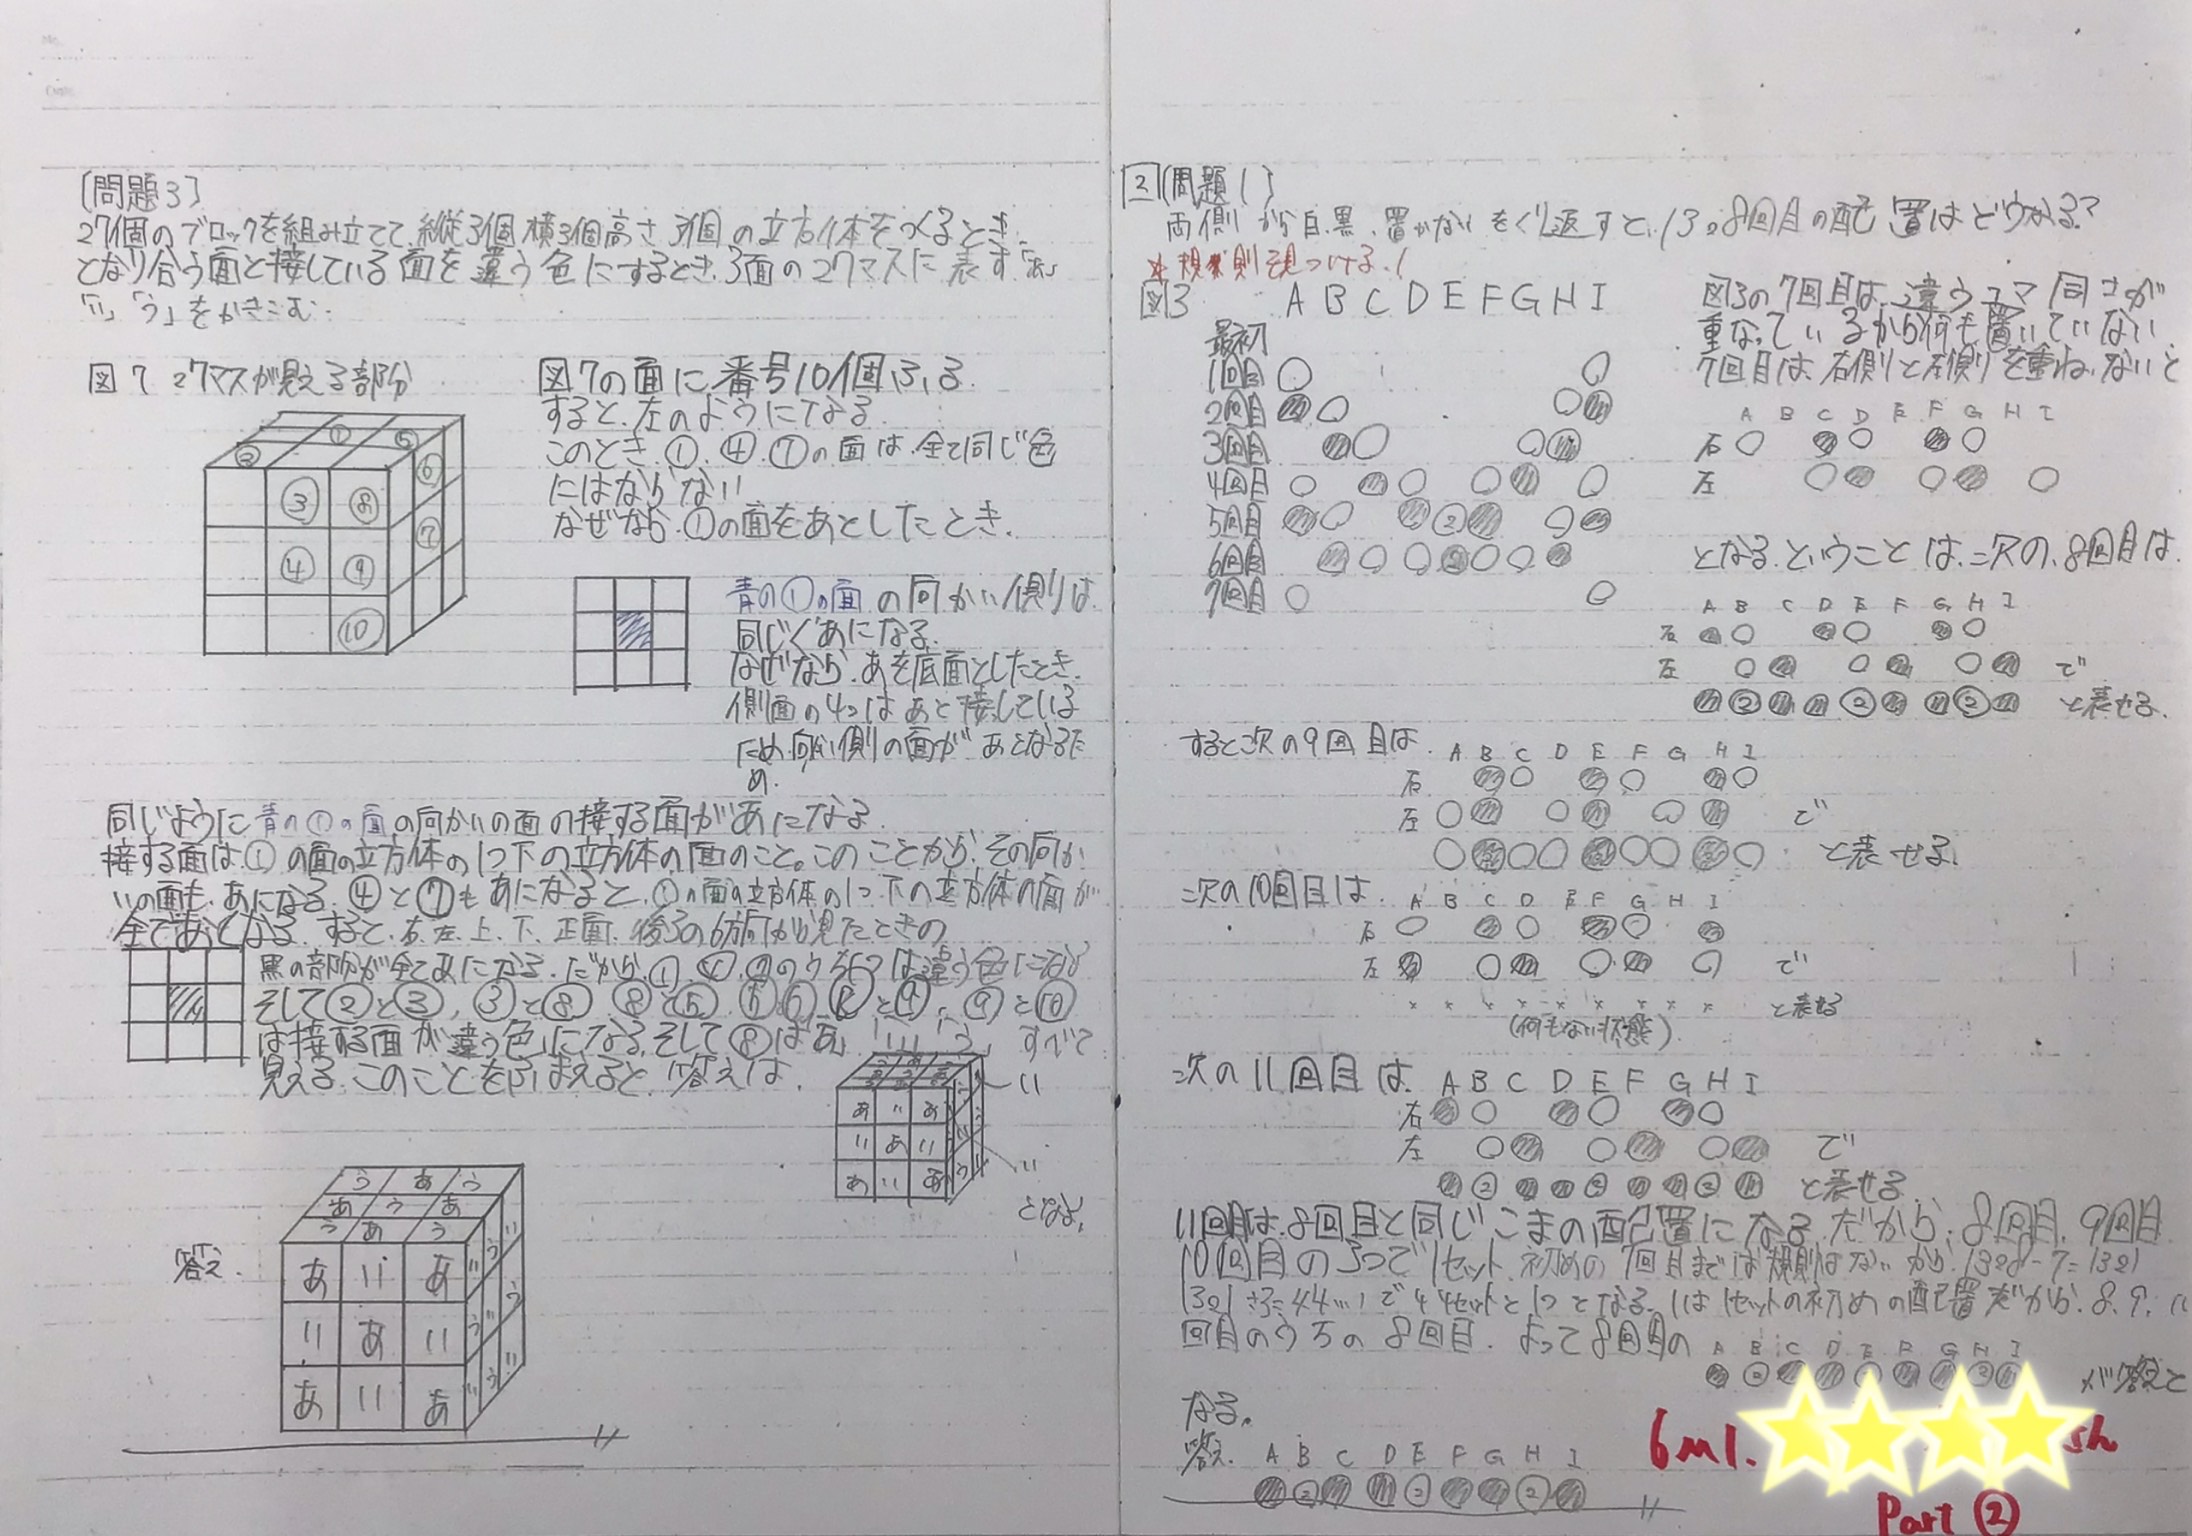 〔問題3〕
27個のブロックを組み立てて、縦3個横3個高さ3個の立方体をつくるとき、
となり合う面と接している面を違う色にするとき、3面の27マスに表す「あ」
「い」「う」をかきこむ。
図7 27マスが見える部分
図7の面に番号10個ふる
すると、左のようになる
このとき、①、④、⑦の面は、全て同じ色
にはならない
なぜなら、①の面をあとしたとき、
① ⑤
②
③ ⑧ ⑥
④ ⑨ ⑦
⑩
青の①の面の向かい側は
同じくあになる。
なぜなら、あを底面としたとき、
側面の4つはあと接している
ため、向かい側の面があとなるた
め。
同じように青の①の面の向かいの面の接する面があになる
接する面は①の面の立方体の1つ下の立方体の面のこと。このことから、その向か
いの面も、あになる。④と⑦もあになると、①の面の立方体の1つ下の立方体の面が
全てあとなる。すると、右、左、上、下、正面、後ろの6方向から見たときの
黒の部分が全てあになる。だから、①、④、⑦のうち1つは違う色になる
そして②と③、③と⑧、⑧と⑤、
と⑨、⑨と⑩
は接する面が違う色になる。そして⑧は「あ」「い」「う」すべて
見える。このことをふまえると、答えは、
あ い あ
い あ い
あ い あ
い
い
となる。
答え.
う あ う
あ う あ
う あ う
あ い あ
い あ い
あ い あ
2〔問題1〕
両側から白、黒、置かないをくり返すと、1328回目の配置はどうなる?
※規則を見つける!
図3 A B C D E F G H I
最初
1回目
2回目
3回目
4回目
5回目 2
6回目 2
7回目
図3の7回目は、違うコマ同士が
重なっているから何も置いていない
7回目は、右側と左側を重ねないと
A B C D E F G H I
右
左
となる。ということは、次の、8回目は、
A B C D E F G H I
右
左 で
2 2 2 と表せる。
すると次の9回目は、A B C D E F G H I
右
左 で
2 2 2 と表せる。
次の10回目は、A B C D E F G H I
右
左 で
× × × × × × × × × と表せる
(何もない状態)
次の11回目は、A B C D E F G H I
右
左 で
2 2 2 と表せる
11回目は、8回目と同じこまの配置になる。だから、8回目、9回目
10回目の3つで1セット、初めの7回目までは規則はないから、1328-7=1321
1321÷3=44…1で44セットと1つとなる。1は1セットの初めの配置だから、8、9、
回目のうちの8回目、よって8回目の A B C D E F G H I
が答えと
なる。
答え. A B C D E F G H I
2 2 2
Part ②